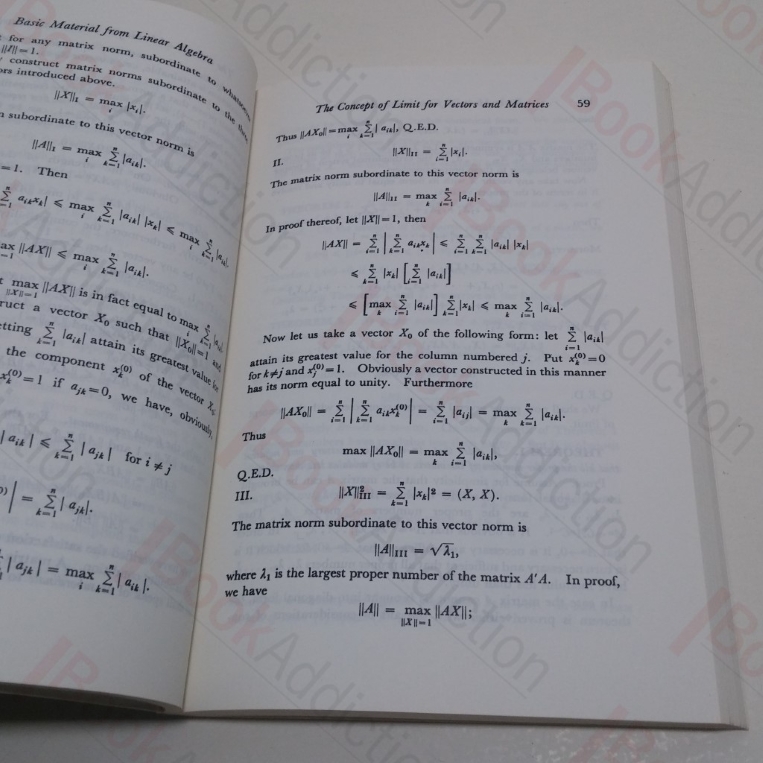 Basic Material from Linear Algebra
for any matrix norm, subordinate to
‖I‖=1.
construct matrix norms subordinate to the
introduced above.
‖X‖_I = max_i |x_i|.
subordinate to this vector norm is
‖A‖_I = max_i Σ_{k=1}^n |a_{ik}|.
=1. Then
Σ a_{ik}x_k| ⩽ max_i Σ_{k=1}^n |a_{ik}| |x_k| ⩽ max_i Σ_{k=1}^n |a_{ik}|.
‖AX‖ ⩽ max_i Σ_{k=1}^n |a_{ik}|.
max_{‖X‖=1} ‖AX‖ is in fact equal to max_i Σ_{k=1}^n |a_{ik}|.
a vector X_0 such that ‖X_0‖=1 and
Σ_{k=1}^n |a_{ik}| attain its greatest value for
the component x_k^{(0)} of the vector X_0
x_k^{(0)}=1 if a_{jk}=0, we have, obviously,
|a_{ik}| ⩽ Σ_{k=1}^n |a_{jk}| for i≠j
| = Σ_{k=1}^n |a_{jk}|.
Σ_{k=1}^n |a_{jk}| = max_i Σ_{k=1}^n |a_{ik}|.
The Concept of Limit for Vectors and Matrices 59
Thus ‖AX_0‖=max_i Σ_{k=1}^n |a_{ik}|, Q.E.D.
II. ‖X‖_{II} = Σ_{i=1}^n |x_i|.
The matrix norm subordinate to this vector norm is
‖A‖_{II} = max_k Σ_{i=1}^n |a_{ik}|.
In proof thereof, let ‖X‖=1, then
‖AX‖ = Σ_{i=1}^n |Σ_{k=1}^n a_{ik}x_k| ⩽ Σ_{i=1}^n Σ_{k=1}^n |a_{ik}| |x_k|
⩽ Σ_{k=1}^n |x_k| [Σ_{i=1}^n |a_{ik}|]
⩽ [max_k Σ_{i=1}^n |a_{ik}|] Σ_{k=1}^n |x_k| ⩽ max_k Σ_{i=1}^n |a_{ik}|.
Now let us take a vector X_0 of the following form: let Σ_{i=1}^n |a_{ik}|
attain its greatest value for the column numbered j. Put x_k^{(0)}=0
for k≠j and x_j^{(0)}=1. Obviously a vector constructed in this manner
has its norm equal to unity. Furthermore
‖AX_0‖ = Σ_{i=1}^n |Σ_{k=1}^n a_{ik}x_k^{(0)}| = Σ_{i=1}^n |a_{ij}| = max_k Σ_{i=1}^n |a_{ik}|.
Thus
max ‖AX_0‖ = max_k Σ_{i=1}^n |a_{ik}|,
Q.E.D.
III. ‖X‖²_{III} = Σ_{k=1}^n |x_k|² = (X, X).
The matrix norm subordinate to this vector norm is
‖A‖_{III} = √λ_1,
where λ_1 is the largest proper number of the matrix A′A. In proof,
we have
‖A‖ = max_{‖X‖=1} ‖AX‖;
BookAddiction